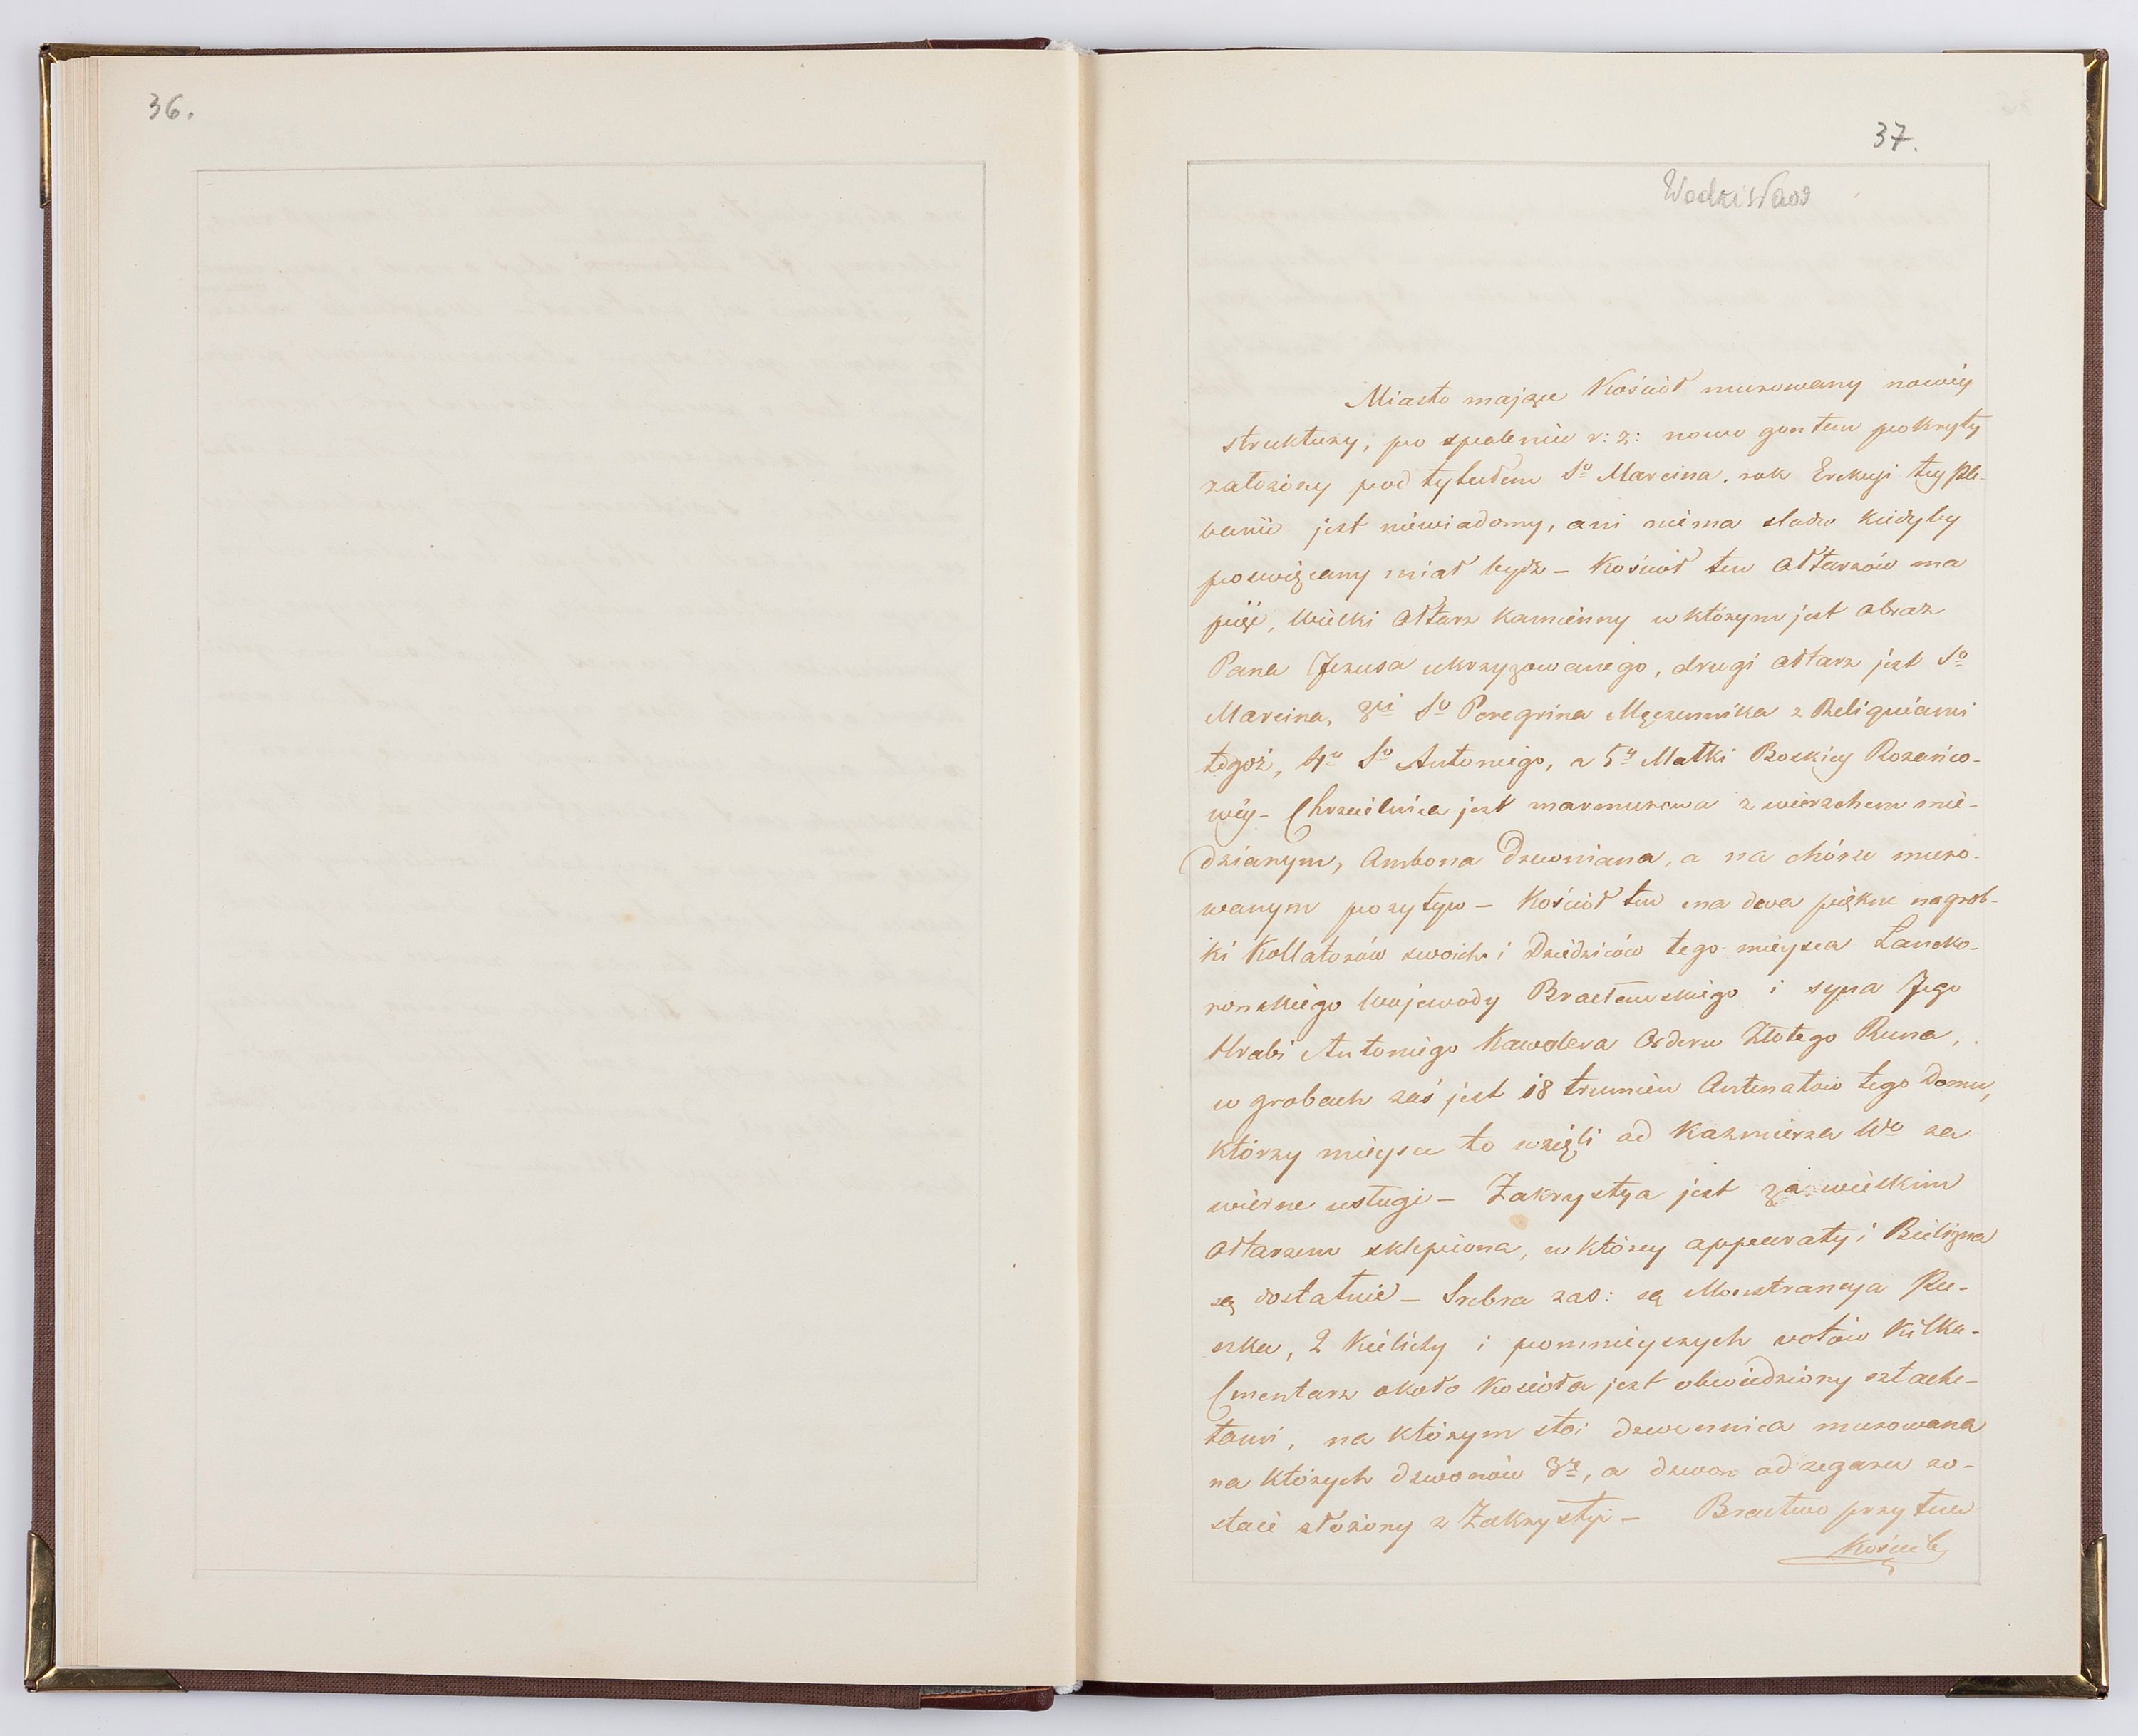 36.
37.
Wodzisław
Miasto mające Kościoł murowany nowéy
struktury, po spaleniu r: z: nowo gontem pokryty
założony pod tytułem Sº Marcina. rok Erekcyi tey Ple-
banii jest niéwiadomy, ani niéma sladu kiedyby
poswięcany miał bydz – Kościoł ten Ołtarzów ma
pięć, Wielki Ołtarz kamienny w którym jest obraz
Pana Jezusa ukrzyzowanego, drugi ołtarz jest Sº
Marcina, 3ci Sº Peregrina Męczennika z Reliquiami
tegoż, 4ty Sº Antoniego, a 5ty Matki Boskiey Rozańco-
wéy – Chrzcielnica jest marmurowa z wiérzchem mié-
dzianym, Ambona drewniana, a na chórze muro-
wanym pozytyw – Kościoł ten ma dwa piękne nagrob-
ki Kollatorów swoich i Dziedziców tego mieysca Lancko-
ronskiégo Wojewody Bracławskiégo i syna Jego
Hrabi Antoniégo Kawalera Orderu Złotego Runa,
w grobach zaś jest 18 trumien Antenatów tego Domu,
którzy miéysce to wzięli od Kazmierza Wº za
wiérne usługi – Zakrystya jest za wielkim
Ołtarzem sklepiona, w którey apparaty i Bielizna
są dostatnie – Srebra zas: są Monstrancya Pu-
szka, 2 Kielichy i pomnieyszych votów kilka –
Cmentarz około Kościoła jest obwiedziony sztache-
tami, na którym stoi dzwonnica murowana
na których dzwonów 3y, a dzwon od zegaru zo-
stał złożony w Zakrystyi – Bractwo przy tem
Kościele